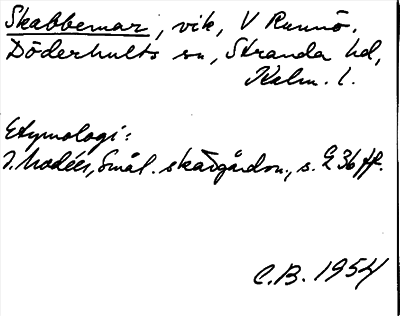 Skabbemar, vik, V Runnö,
Döderhults sn, Stranda hd,
Kalm. l.
Etymologi:
I. Modéer, Smål. skärgårdsn., s. 236 ff.
C.B. 1954